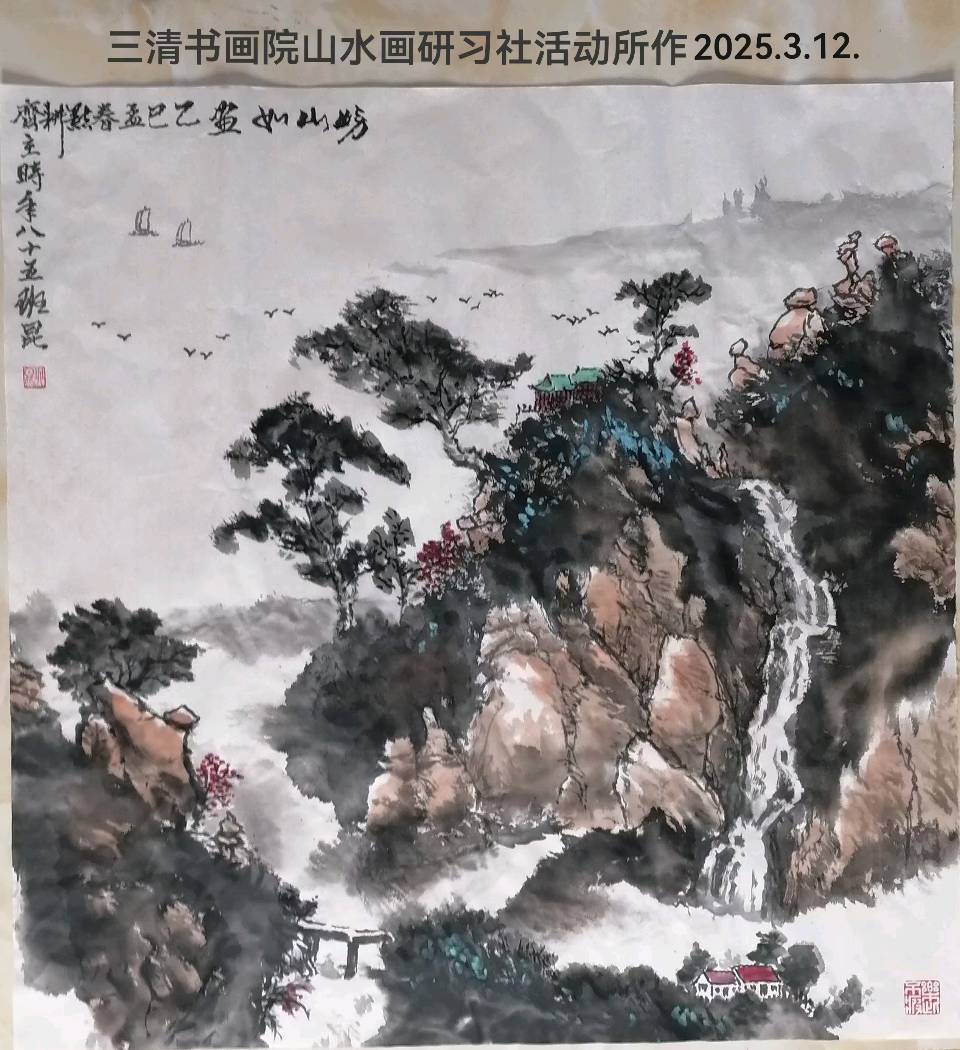 三清书画院山水画研习社活动所作2025.3.12.
崂山如画 乙巳孟春默耕齋
主時年八十五班昆